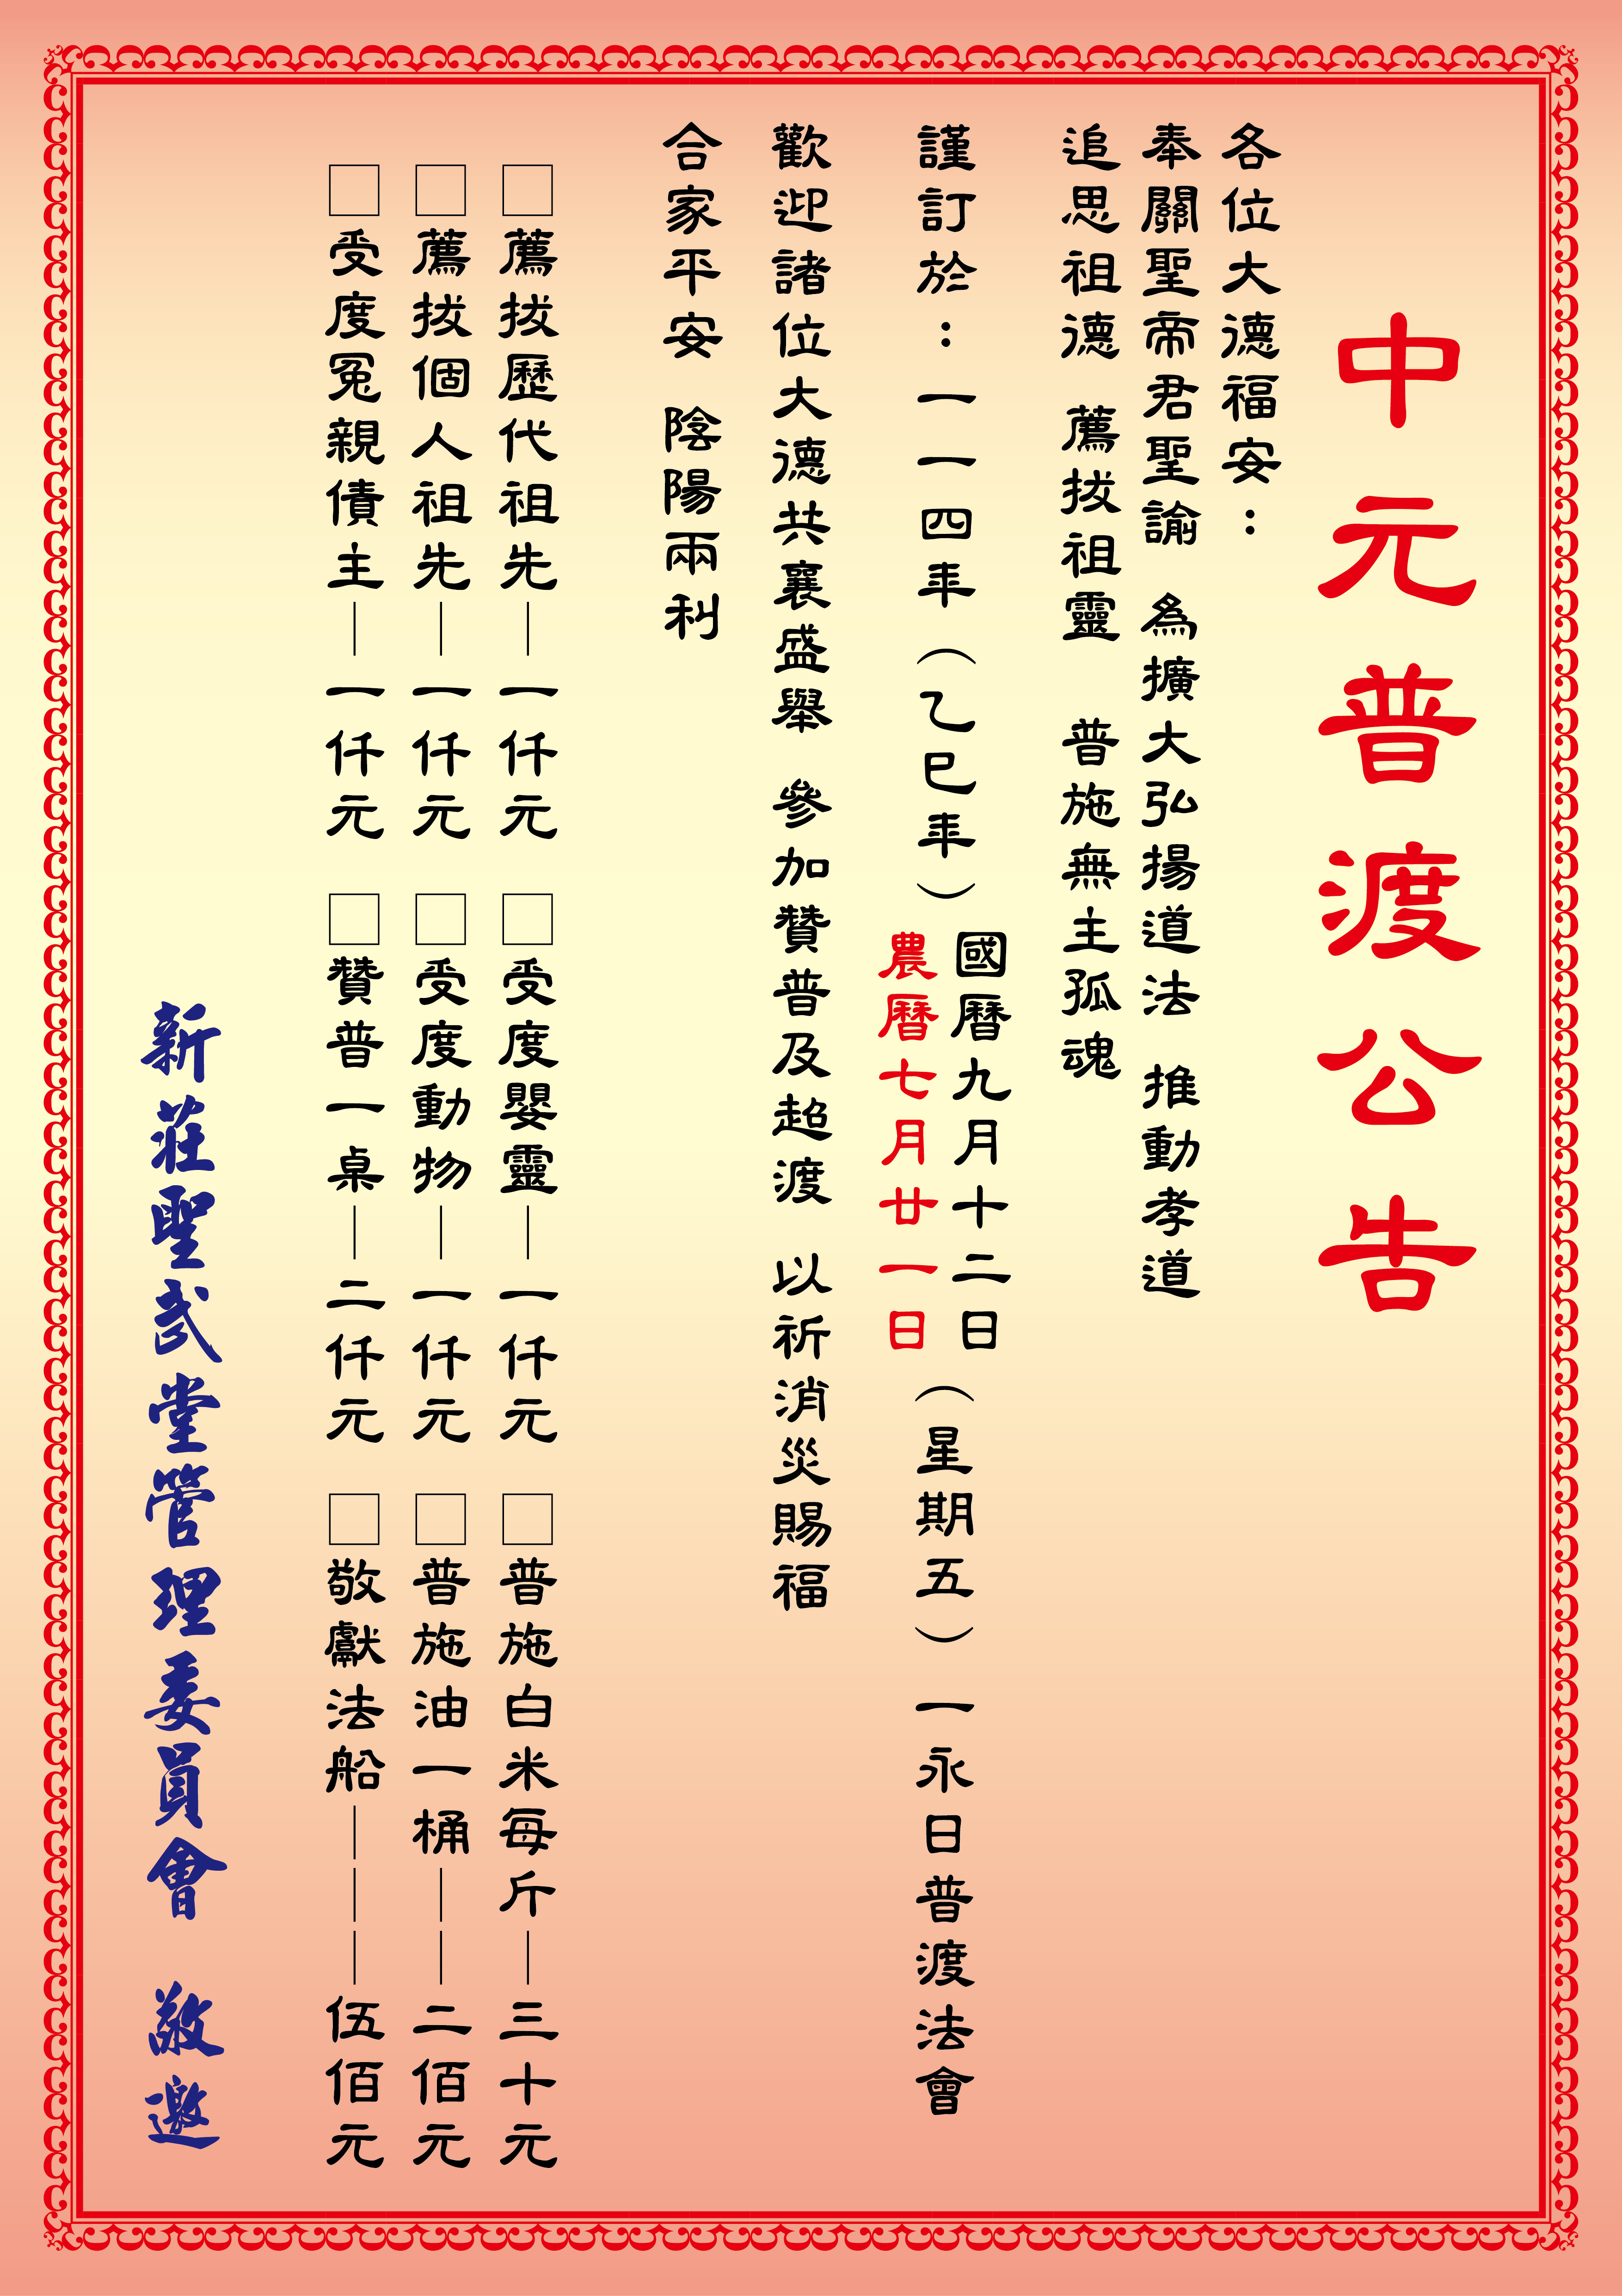 中元普渡公告
各位大德福安：
奉關聖帝君聖諭　為擴大弘揚道法　推動孝道
追思祖德　薦拔祖靈　普施無主孤魂
謹訂於：一一四年（乙巳年）國曆九月十二日農曆七月廿一日（星期五）一永日普渡法會
歡迎諸位大德共襄盛舉　參加贊普及超渡　以祈消災賜福
合家平安　陰陽兩利
□薦拔歷代祖先—一仟元　□受度嬰靈—一仟元　□普施白米每斤—三十元
□薦拔個人祖先—一仟元　□受度動物—一仟元　□普施油一桶——二佰元
□受度冤親債主—一仟元　□贊普一桌—二仟元　□敬獻法船———伍佰元
新莊聖武堂管理委員會　敬邀